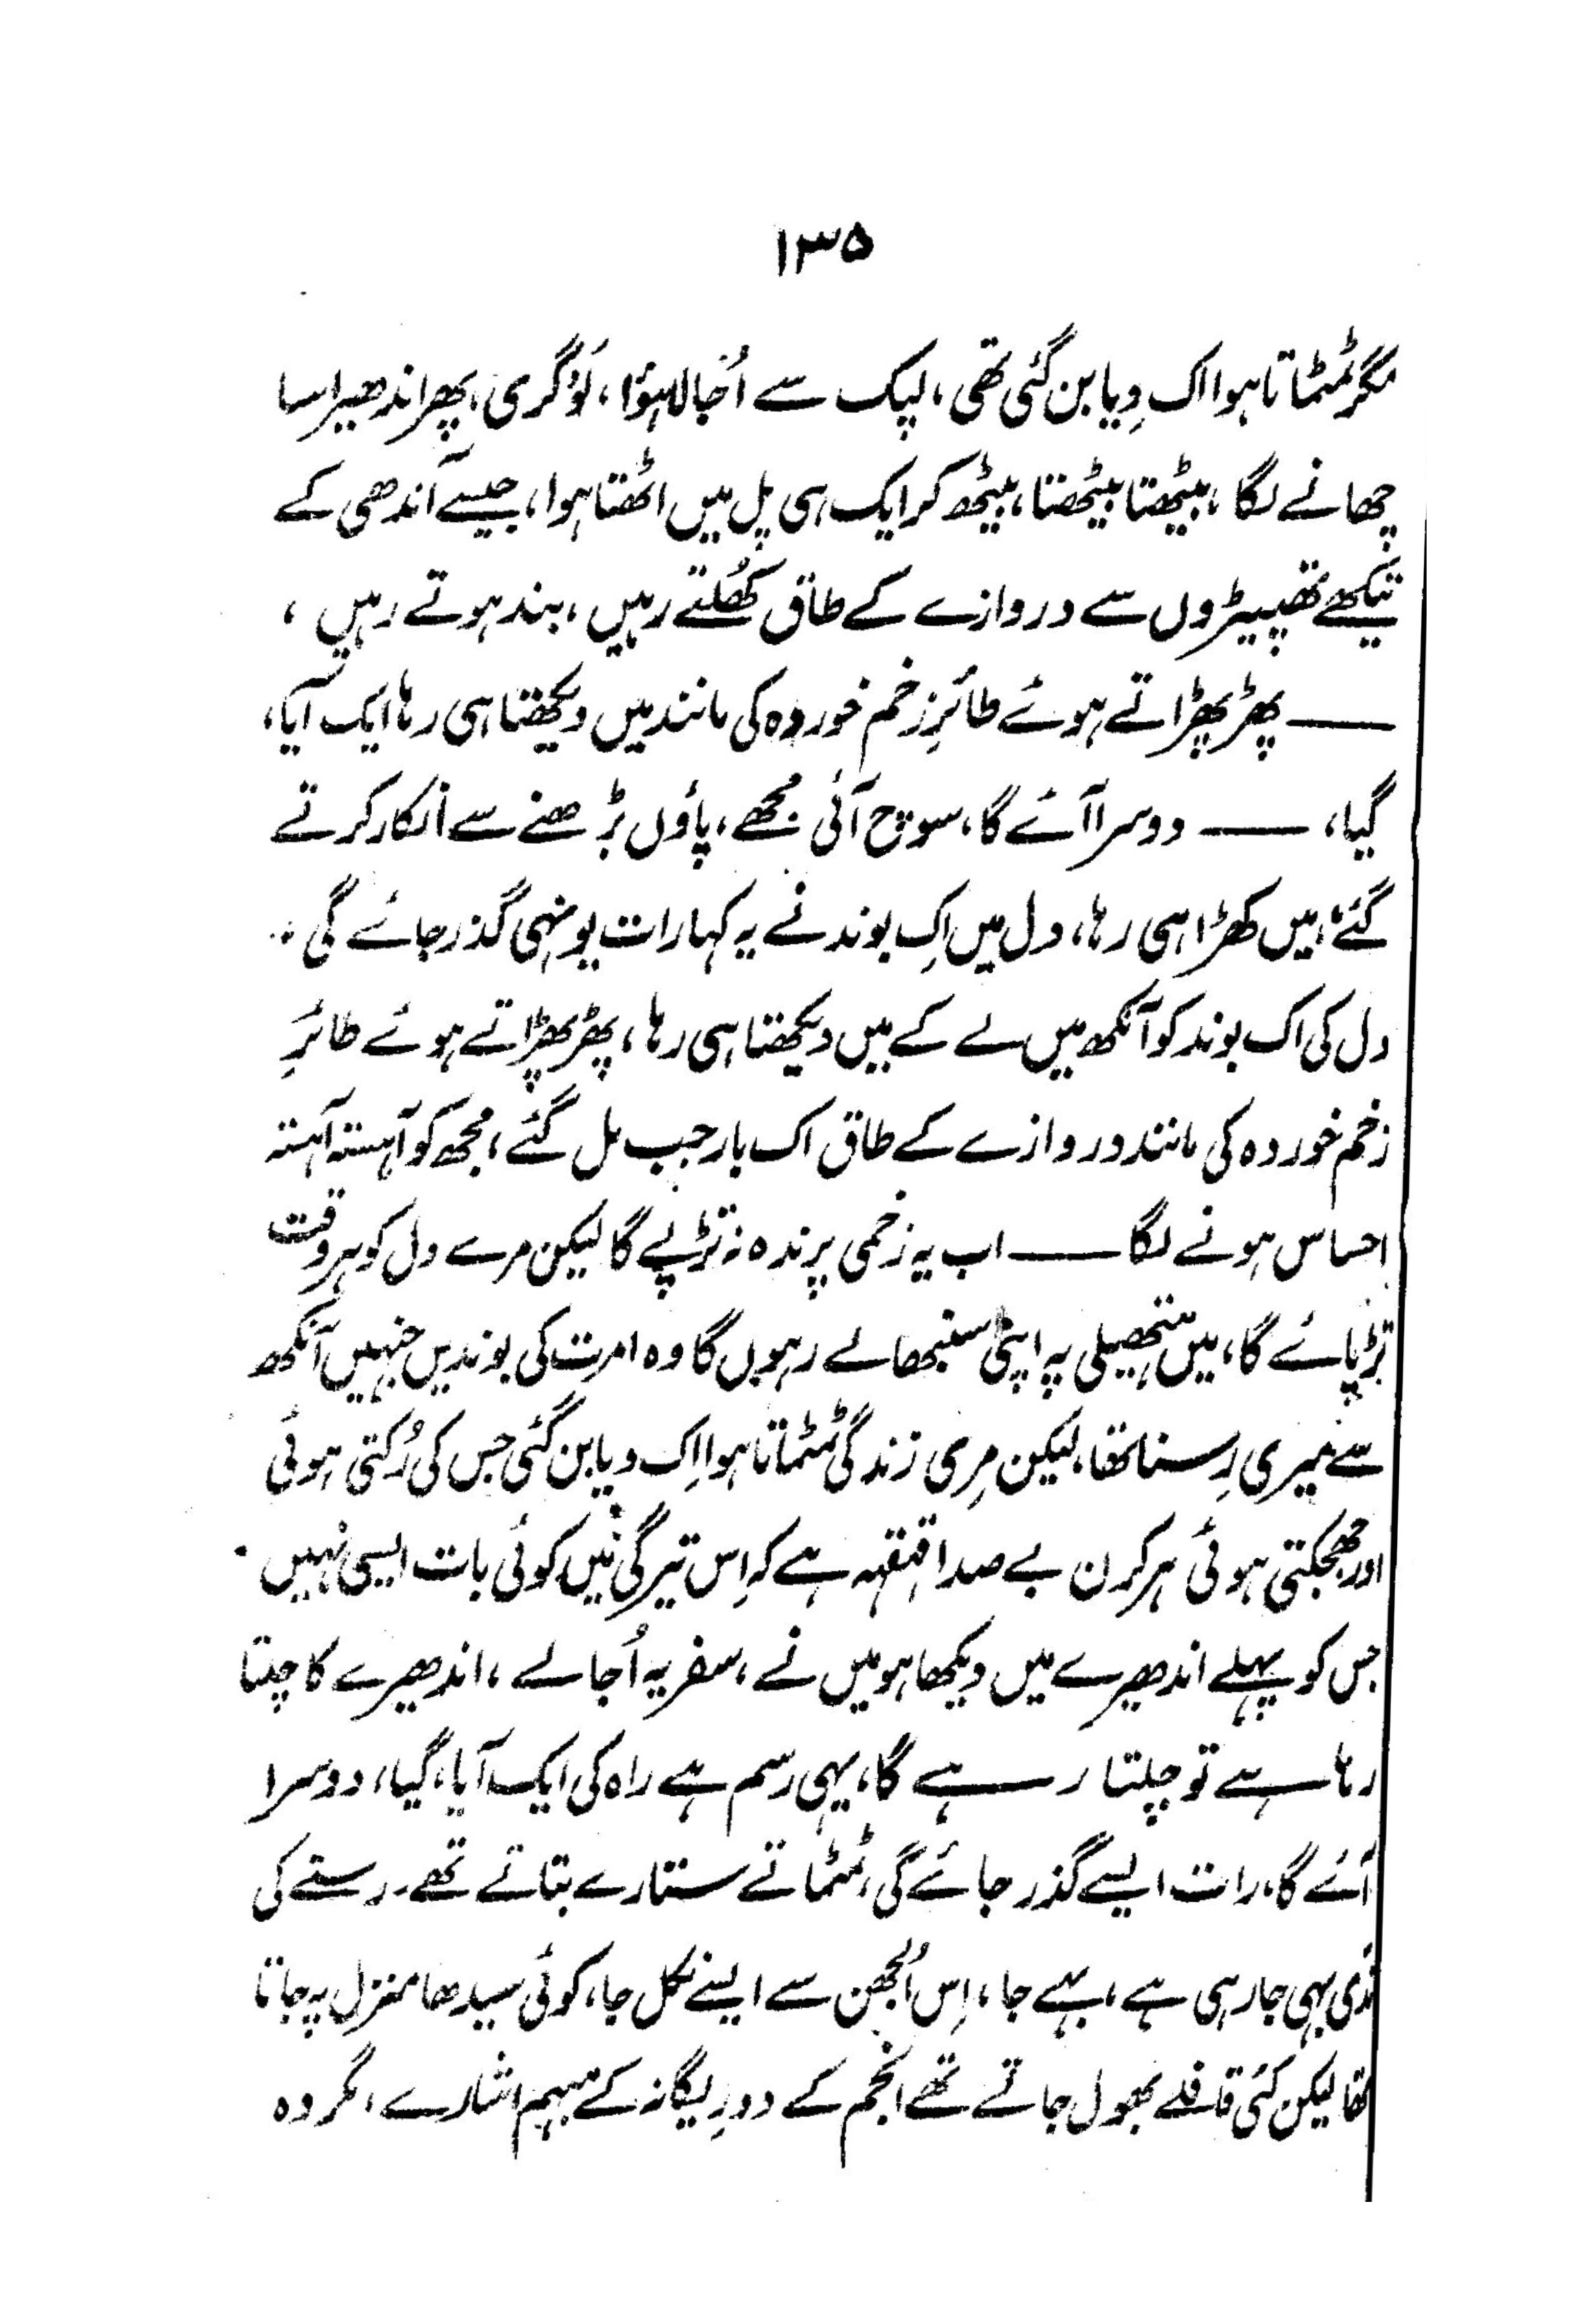 ۱۳۵
مگر ٹمٹماتا ہوا اک دِیا بن گئی تھی، لپک سے اُجالا ہؤا، لَو گری، پھر اندھیرا سا
چھانے لگا، بیٹھتا بیٹھتا، بیٹھ کر ایک ہی پل میں اٹھتا ہوا، جیسے آندھی کے
تیکھے تھپیڑوں سے دروازے کے طاق کھُلتے رہیں، بند ہوتے رہیں،
—— پھڑپھڑاتے ہوئے طائرِ زخم خوردہ کی مانند میں دیکھتا ہی رہا ایک آیا،
گیا، —— دوسرا آئے گا، سوچ آئی مجھے، پاؤں بڑھنے سے انکار کرتے
گئے، میں کھڑا ہی رہا، دل میں اِک بوند نے یہ کہا رات یونہی گذر جائے گی۔
دل کی اک بوند کو آنکھ میں لے کے میں دیکھتا ہی رہا، پھڑپھڑاتے ہوئے طائرِ
زخم خوردہ کی مانند دروازے کے طاق اک بار جب مل گئے، مجھ کو آہستہ آہستہ
احساس ہونے لگا —— اب یہ زخمی پرندہ نہ تڑپے گا لیکن مرے دل کو ہر وقت
تڑپائے گا، میں ہتھیلی پہ اپنی سنبھالے رہوں گا وہ امرت کی بوندیں جنہیں آنکھ
سے میری رِسنا تھا، لیکن مِری زندگی ٹمٹماتا ہوا اِک دیا بن گئی جس کی رُکتی ہوئی
اور جھجکتی ہوئی ہر کرن بے صدا قہقہہ ہے کہ اِس تیرگی میں کوئی بات ایسی نہیں
جس کو پہلے اندھیرے میں دیکھا ہو میں نے، سفر یہ اُجالے، اندھیرے کا چلتا
رہا ہے تو چلتا رہے گا، یہی رسم ہے راہ کی ایک آیا، گیا، دوسرا
آئے گا، رات ایسے گذر جائے گی، ٹمٹماتے ستارے بتاتے تھے۔ رستے کی
ندّی بہی جا رہی ہے، بہے جا، اِس اُلجھن سے ایسے نکل جا، کوئی سیدھا منزل پہ جاتا
تھا لیکن کئی قافلے بھول جاتے تھے انجم کے دورِ یگانہ کے مبہم اشارے، مگر وہ